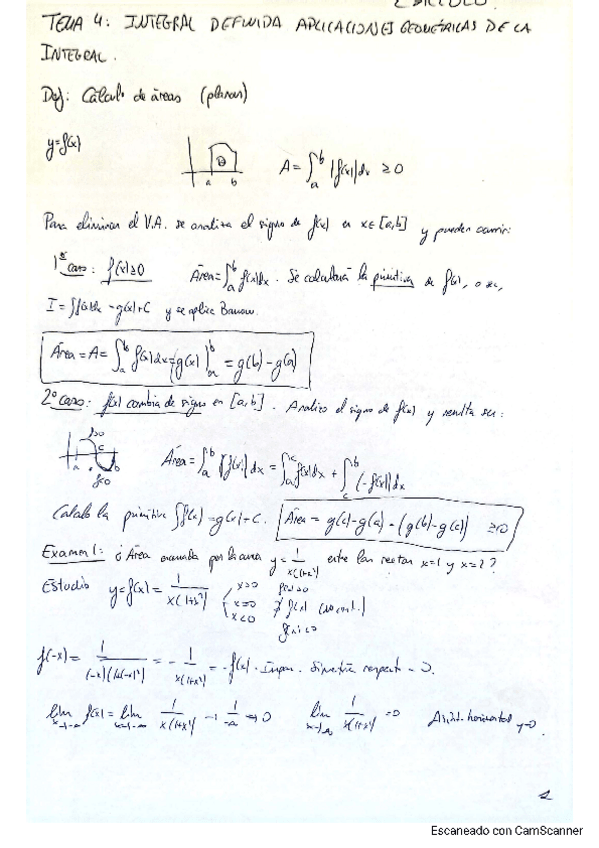 CÁLCULO.
TEMA 4: INTEGRAL DEFINIDA APLICACIONES GEOMÉTRICAS DE LA
INTEGRAL.
Def: Cálculo de áreas (planas)
y=f(x)
a b
A = ∫_a^b |f(x)| dx ≥ 0
Para eliminar el V.A. se analiza el signo de f(x) en x∈[a,b] y pueden ocurrir:
1er caso: f(x)≥0 Área = ∫_a^b f(x)dx. Se calculará la primitiva de f(x), o sea,
I = ∫f(x)dx = g(x)+C y se aplica Barrow.
Área = A = ∫_a^b f(x)dx = g(x)|_a^b = g(b)-g(a)
2º caso: f(x) cambia de signo en [a,b]. Analizo el signo de f(x) y resulta ser:
f>0
a c b
f<0
Área = ∫_a^b |f(x)| dx = ∫_a^c f(x)dx + ∫_c^b (-f(x))dx
Calculo la primitiva ∫f(x) = g(x)+C. Área = g(c)-g(a) - (g(b)-g(c)) ≥0
Examen 1: ¿Área encerrada por la curva y = 1/x(1+x²) entre las rectas x=1 y x=2?
Estudio y=f(x) = 1/x(1+x²)
x>0 f(x)>0
x=0 ∄ f(x) (no cont.)
x<0 f(x)<0
f(-x) = 1/(-x)(1+(-x)²) = - 1/x(1+x²) = -f(x). Impar. Simetría respecto 0.
lim x→-∞ f(x) = lim x→-∞ 1/x(1+x²) → 1/-∞ → 0 lim x→∞ 1/x(1+x²) = 0 Asínt. horizontal y=0.
1
Escaneado con CamScanner